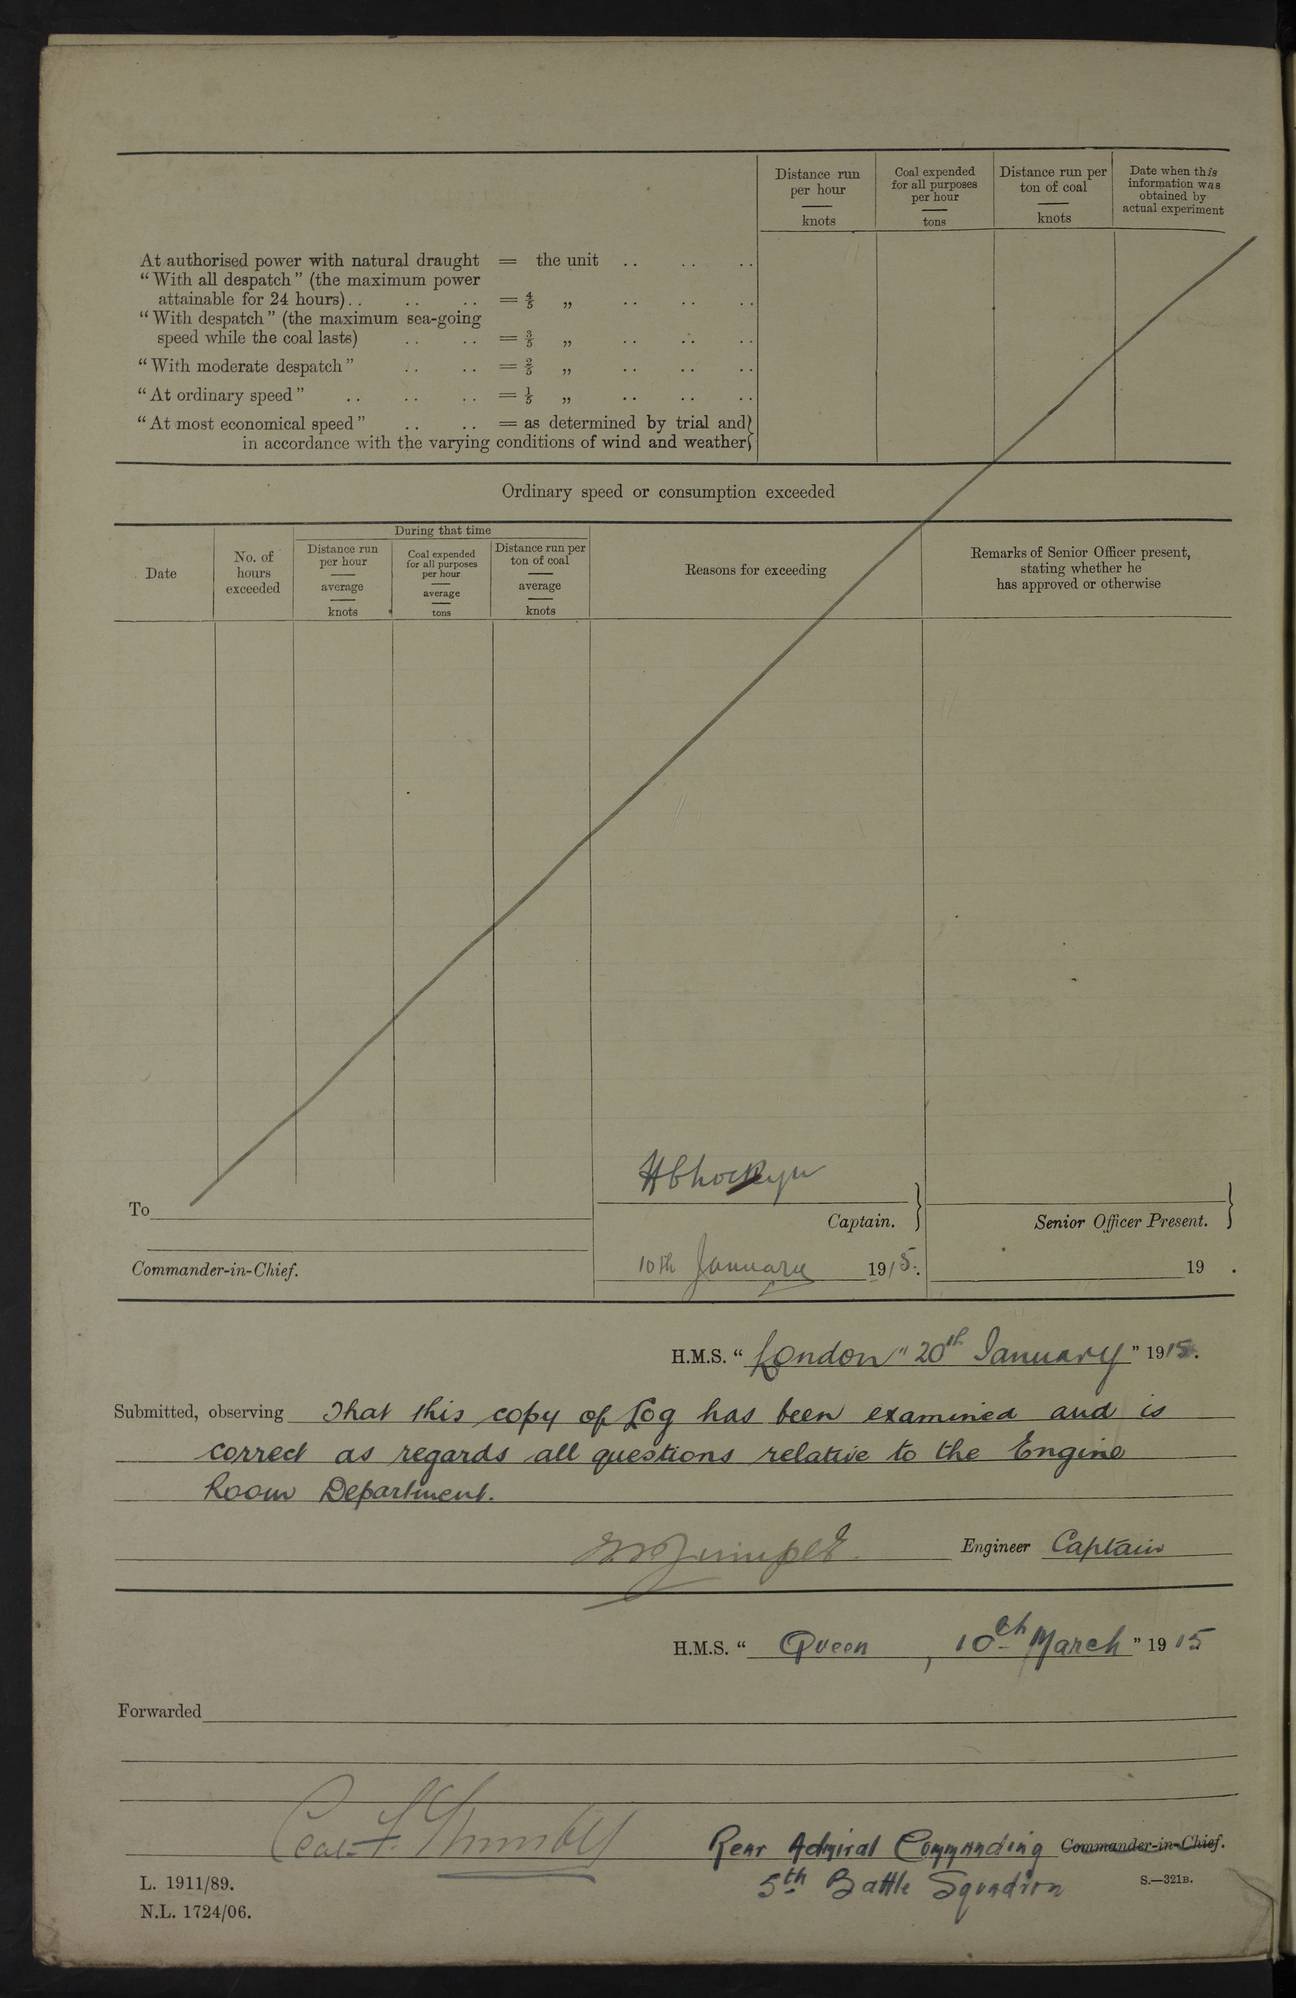 Distance run per hour knots
Coal expended for all purposes per hour tons
Distance run per ton of coal knots
Date when this information was obtained by actual experiment
At authorised power with natural draught = the unit .. .. ..
“With all despatch” (the maximum power
attainable for 24 hours) .. .. .. = 4/5 „ .. .. ..
“With despatch” (the maximum sea-going
speed while the coal lasts) .. .. = 3/5 „ .. .. ..
“With moderate despatch” .. .. = 2/5 „ .. .. ..
“At ordinary speed” .. .. .. = 1/5 „ .. .. ..
“At most economical speed” .. .. = as determined by trial and
in accordance with the varying conditions of wind and weather
Ordinary speed or consumption exceeded
Date
No. of hours exceeded
During that time
Distance run per hour average knots
Coal expended for all purposes per hour average tons
Distance run per ton of coal average knots
Reasons for exceeding
Remarks of Senior Officer present,
stating whether he
has approved or otherwise
To
Captain.
Senior Officer Present.
Commander-in-Chief.
10th January 1915.
19 .
H.M.S. “London” 20th January” 1915.
Submitted, observing That this copy of Log has been examined and is
correct as regards all questions relative to the Engine
Room Department.
Engineer Captain
H.M.S. “ Queen , 10th March ” 1915
Forwarded
Rear Admiral Commanding Commander-in-Chief.
5th Battle Squadron
S.—321B.
L. 1911/89.
N.L. 1724/06.